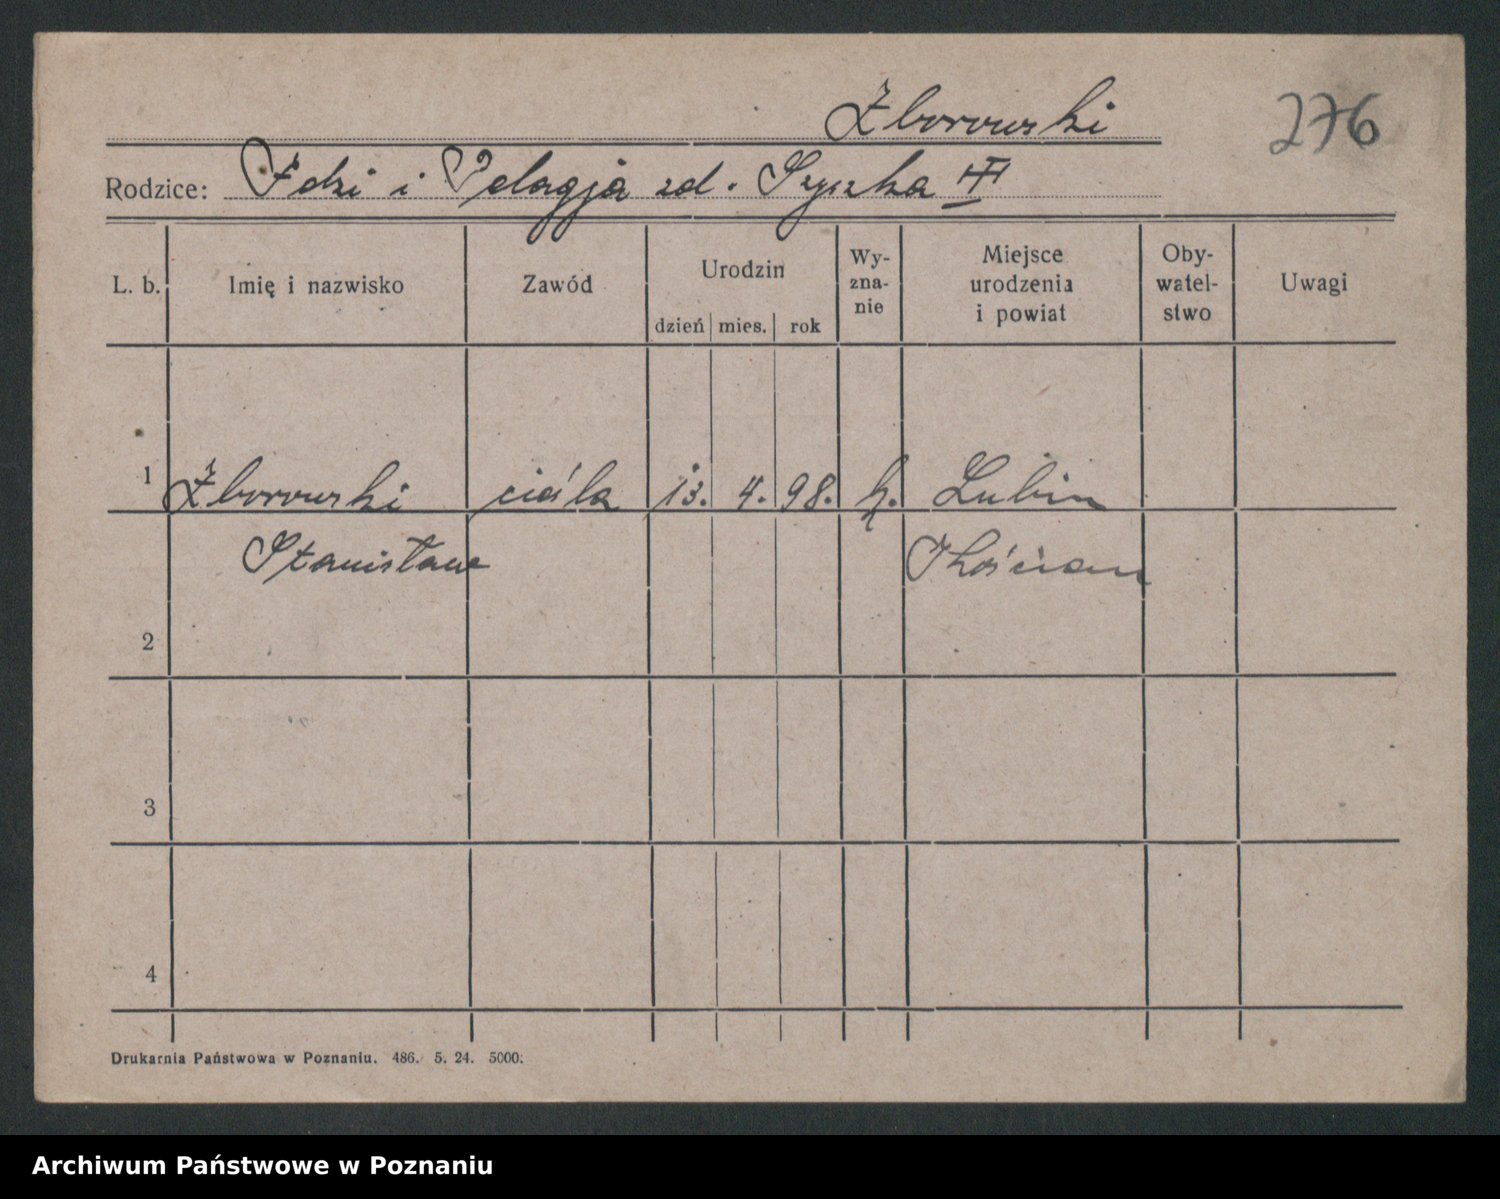 Zborowski
276
Rodzice: Idzi i Pelagja zd. Szyszka III
L. b.
Imię i nazwisko
Zawód
Urodzin
dzień mies. rok
Wy-
zna-
nie
Miejsce
urodzenia
i powiat
Oby-
watel-
stwo
Uwagi
1 Zborowski cieśla 13. 4. 98. k. Lubin
Stanisław Kościan
2
3
4
Drukarnia Państwowa w Poznaniu. 486. 5. 24. 5000.
Archiwum Państwowe w Poznaniu